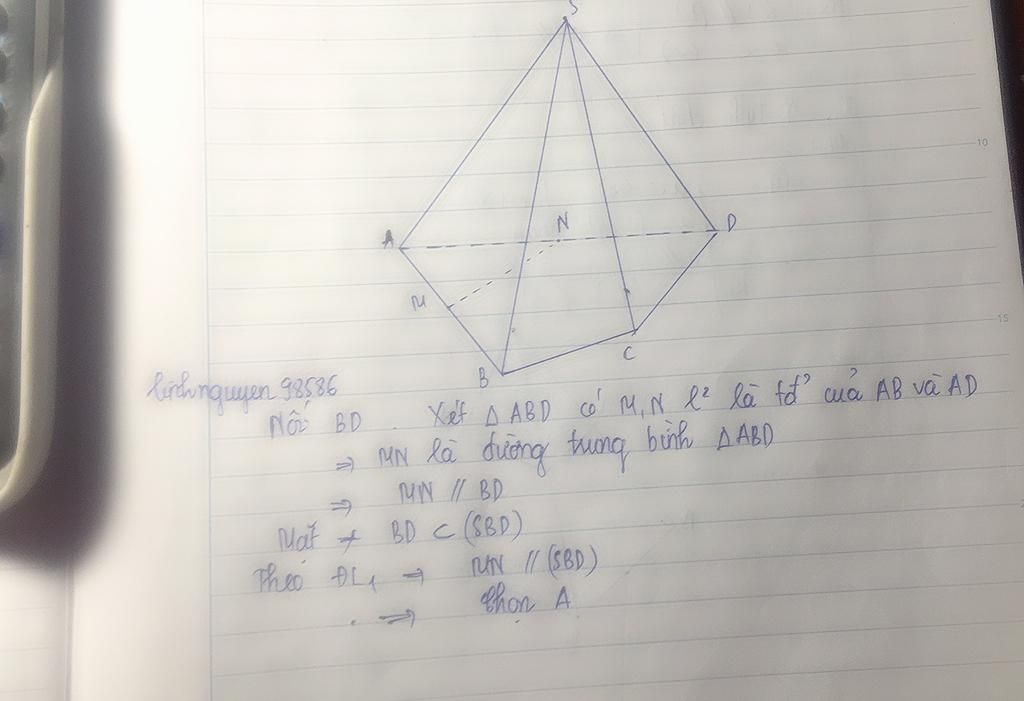 S
10
A
N
D
M
15
B
C
linhnguyen 98586
Nối BD . Xét Δ ABD có M, N l² là tđ² của AB và AD
⇒ MN là đường trung bình ΔABD
⇒ MN // BD
Mặt ≠ BD ⊂ (SBD)
Theo ĐL₁ ⇒ MN // (SBD)
⇒ Chọn A